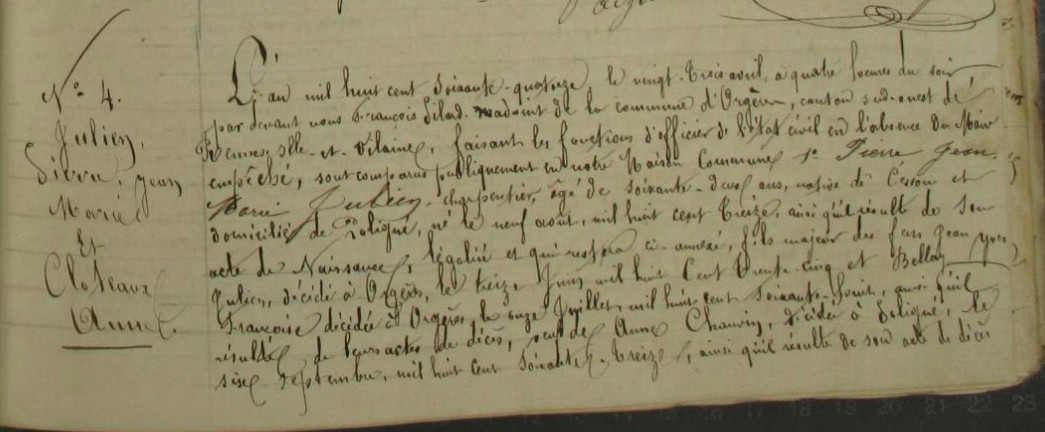 N° 4.
Julien,
Pierre, Jean
Marie
Et
Cloteaux
Anne.
L'an mil huit cent soixante-quatorze le vingt-trois avril, à quatre heures du soir,
par devant nous François Gilard adjoint de la commune d'Orgères, canton sud-ouest de
Rennes, Ille-et-Vilaine, faisant les fonctions d'officier de l'état civil en l'absence du Maire
empêché, sont comparus publiquement en notre Maison Commune 1° Pierre Jean
Marie Julien charpentier, âgé de soixante-deux ans, natif de Cesson et
domicilié de Poligné, né le neuf août, mil huit cent treize, ainsi qu'il résulte de son
acte de Naissance, légalisé et qui restera ci-annexé, fils majeur des feus Jean Yves
Julien, décédé à Orgères, le treize Juin mil huit Cent trente-cinq et Bellay
Françoise décédée à Orgères, le onze Juillet, mil huit cent soixante-huit, ainsi qu'il
résulte de leurs actes de décès, veuf de Anne Chauvin, décédée à Poligné, le
six septembre, mil huit cent soixante-treize, ainsi qu'il résulte de son acte de décès